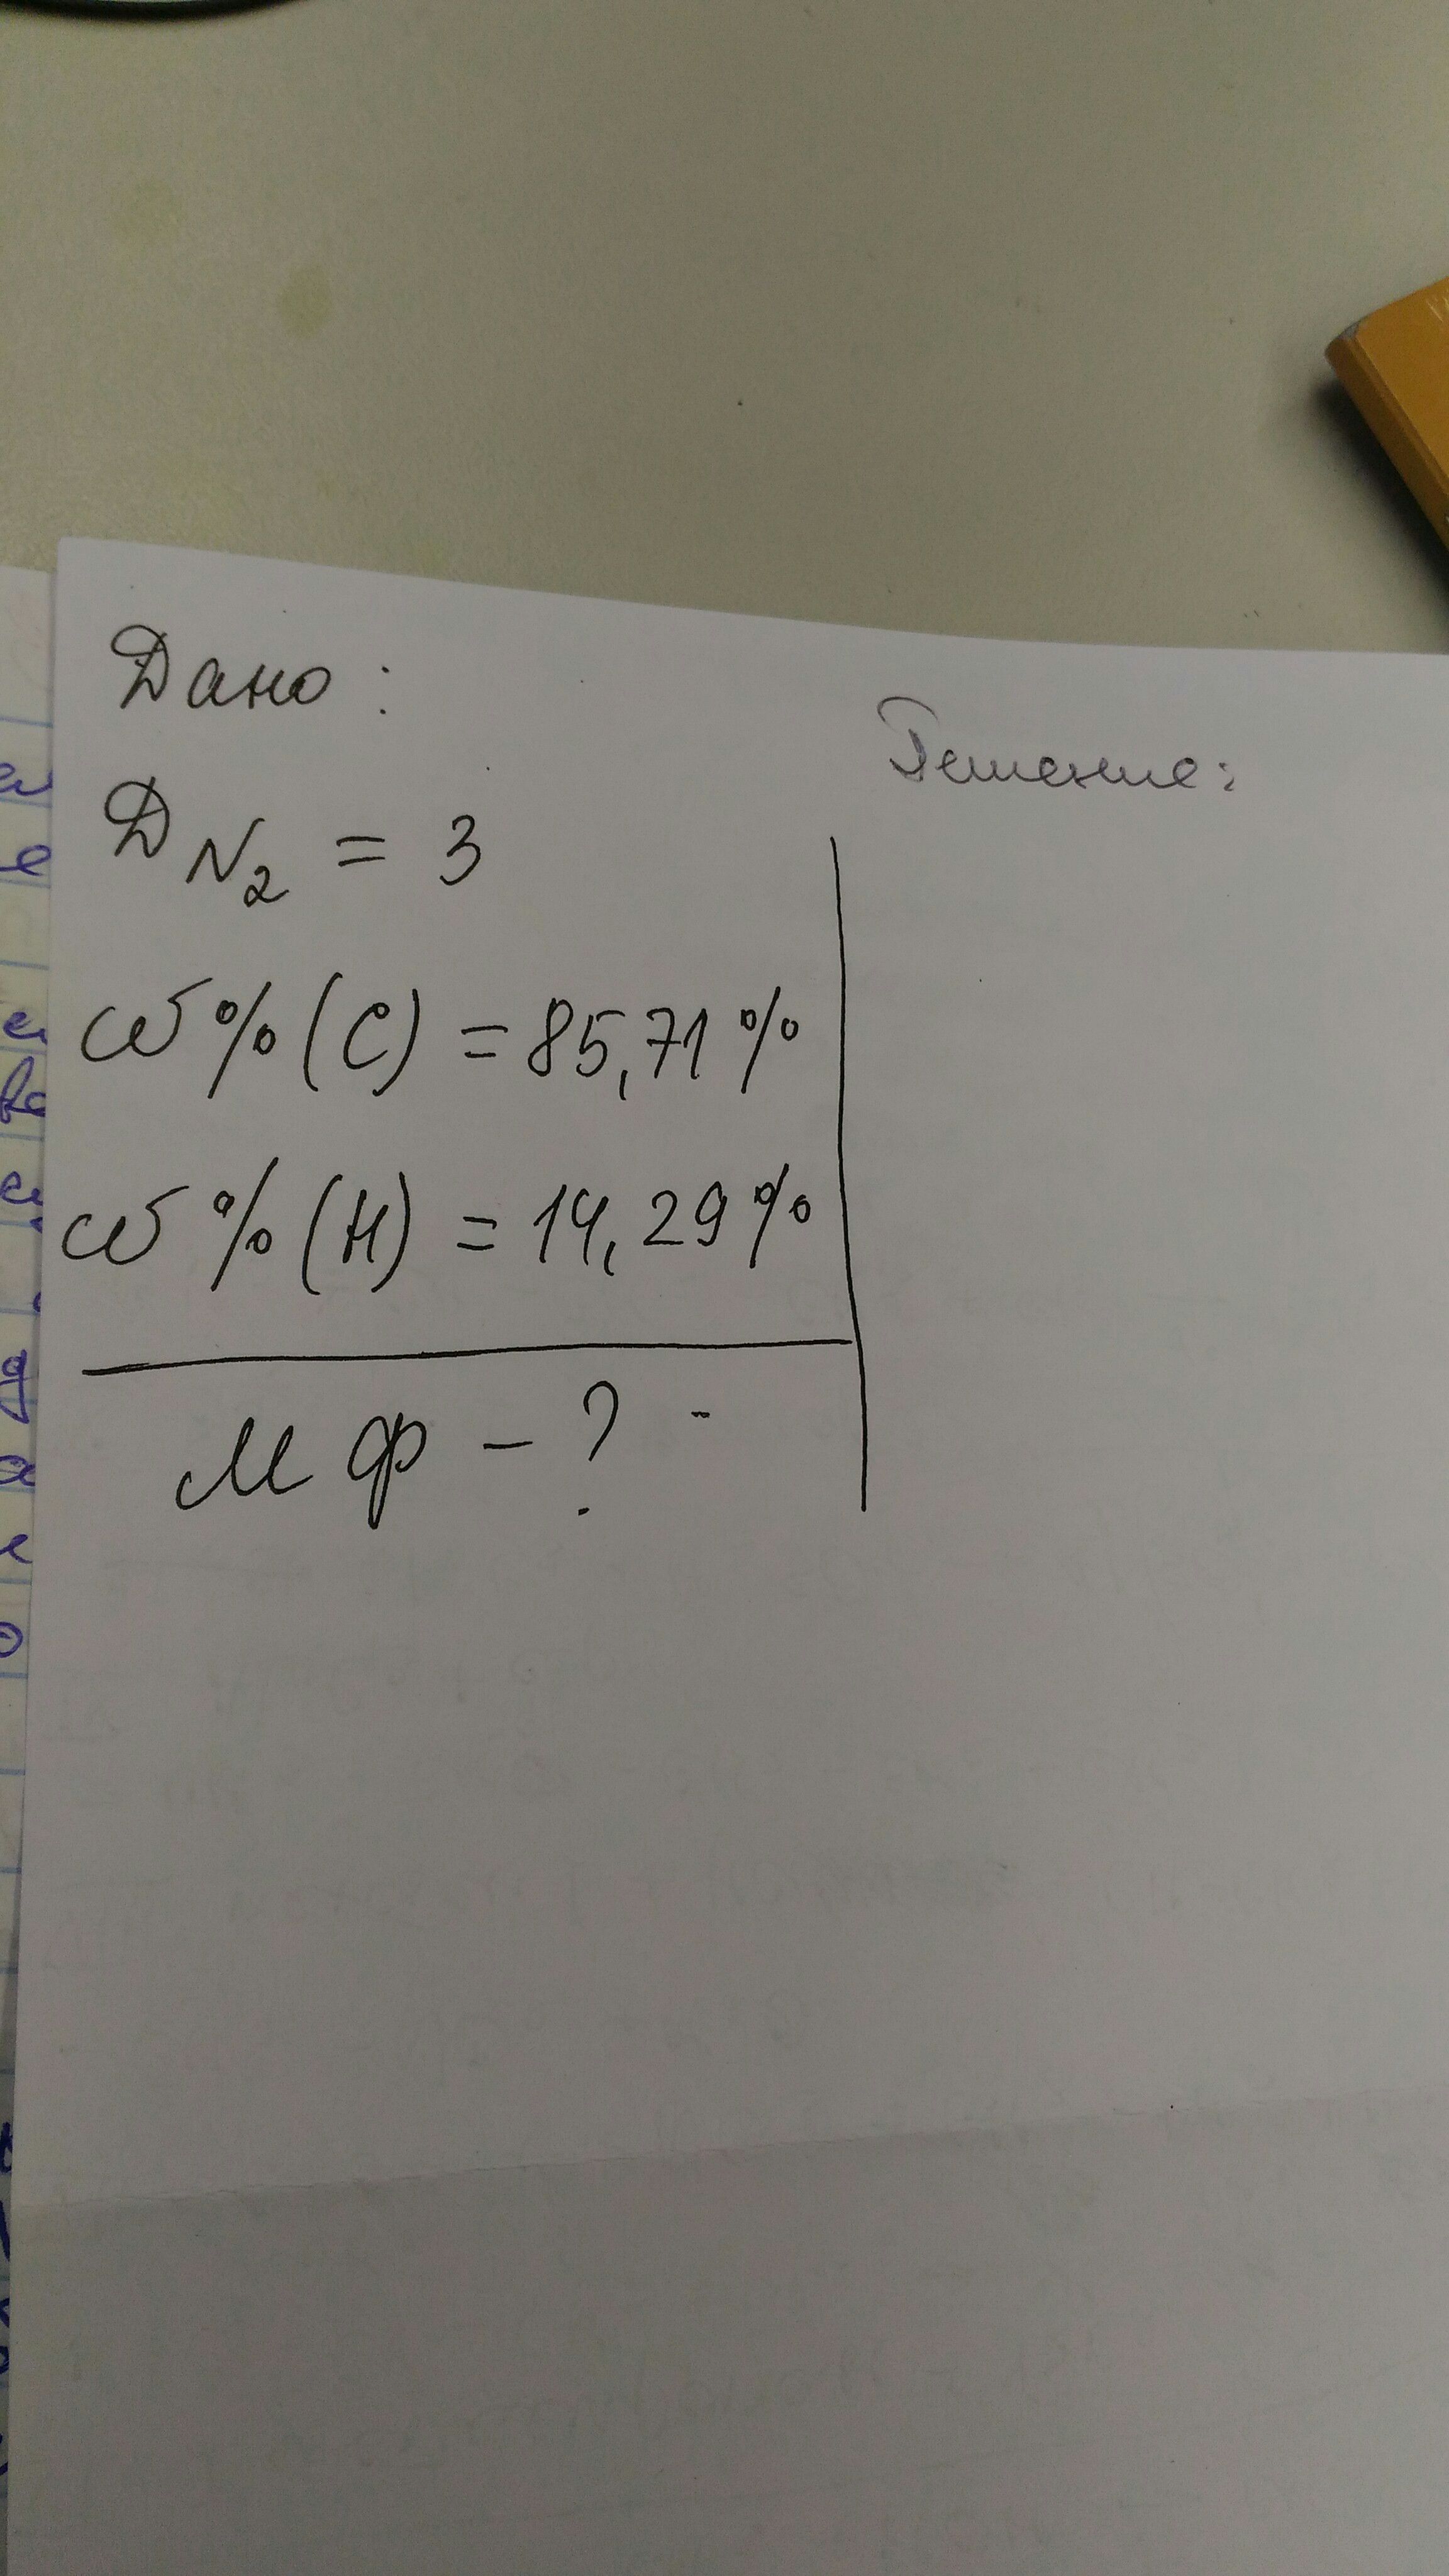 Дано:
Решение:
D N₂ = 3
ω % (C) = 85,71 %
ω % (H) = 14,29 %
МФ - ?